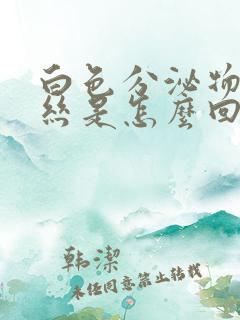 白色分泌物
絲是怎麼回
韩潔
未经同意禁止转载